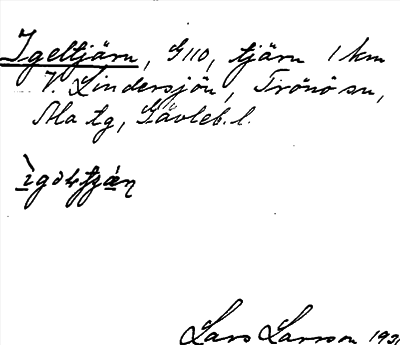 Igeltjärn, G110, tjärn 1 km
V. Lindersjön, Trönö sn,
Ala tg, Gävleb. l.
Lars Larsson